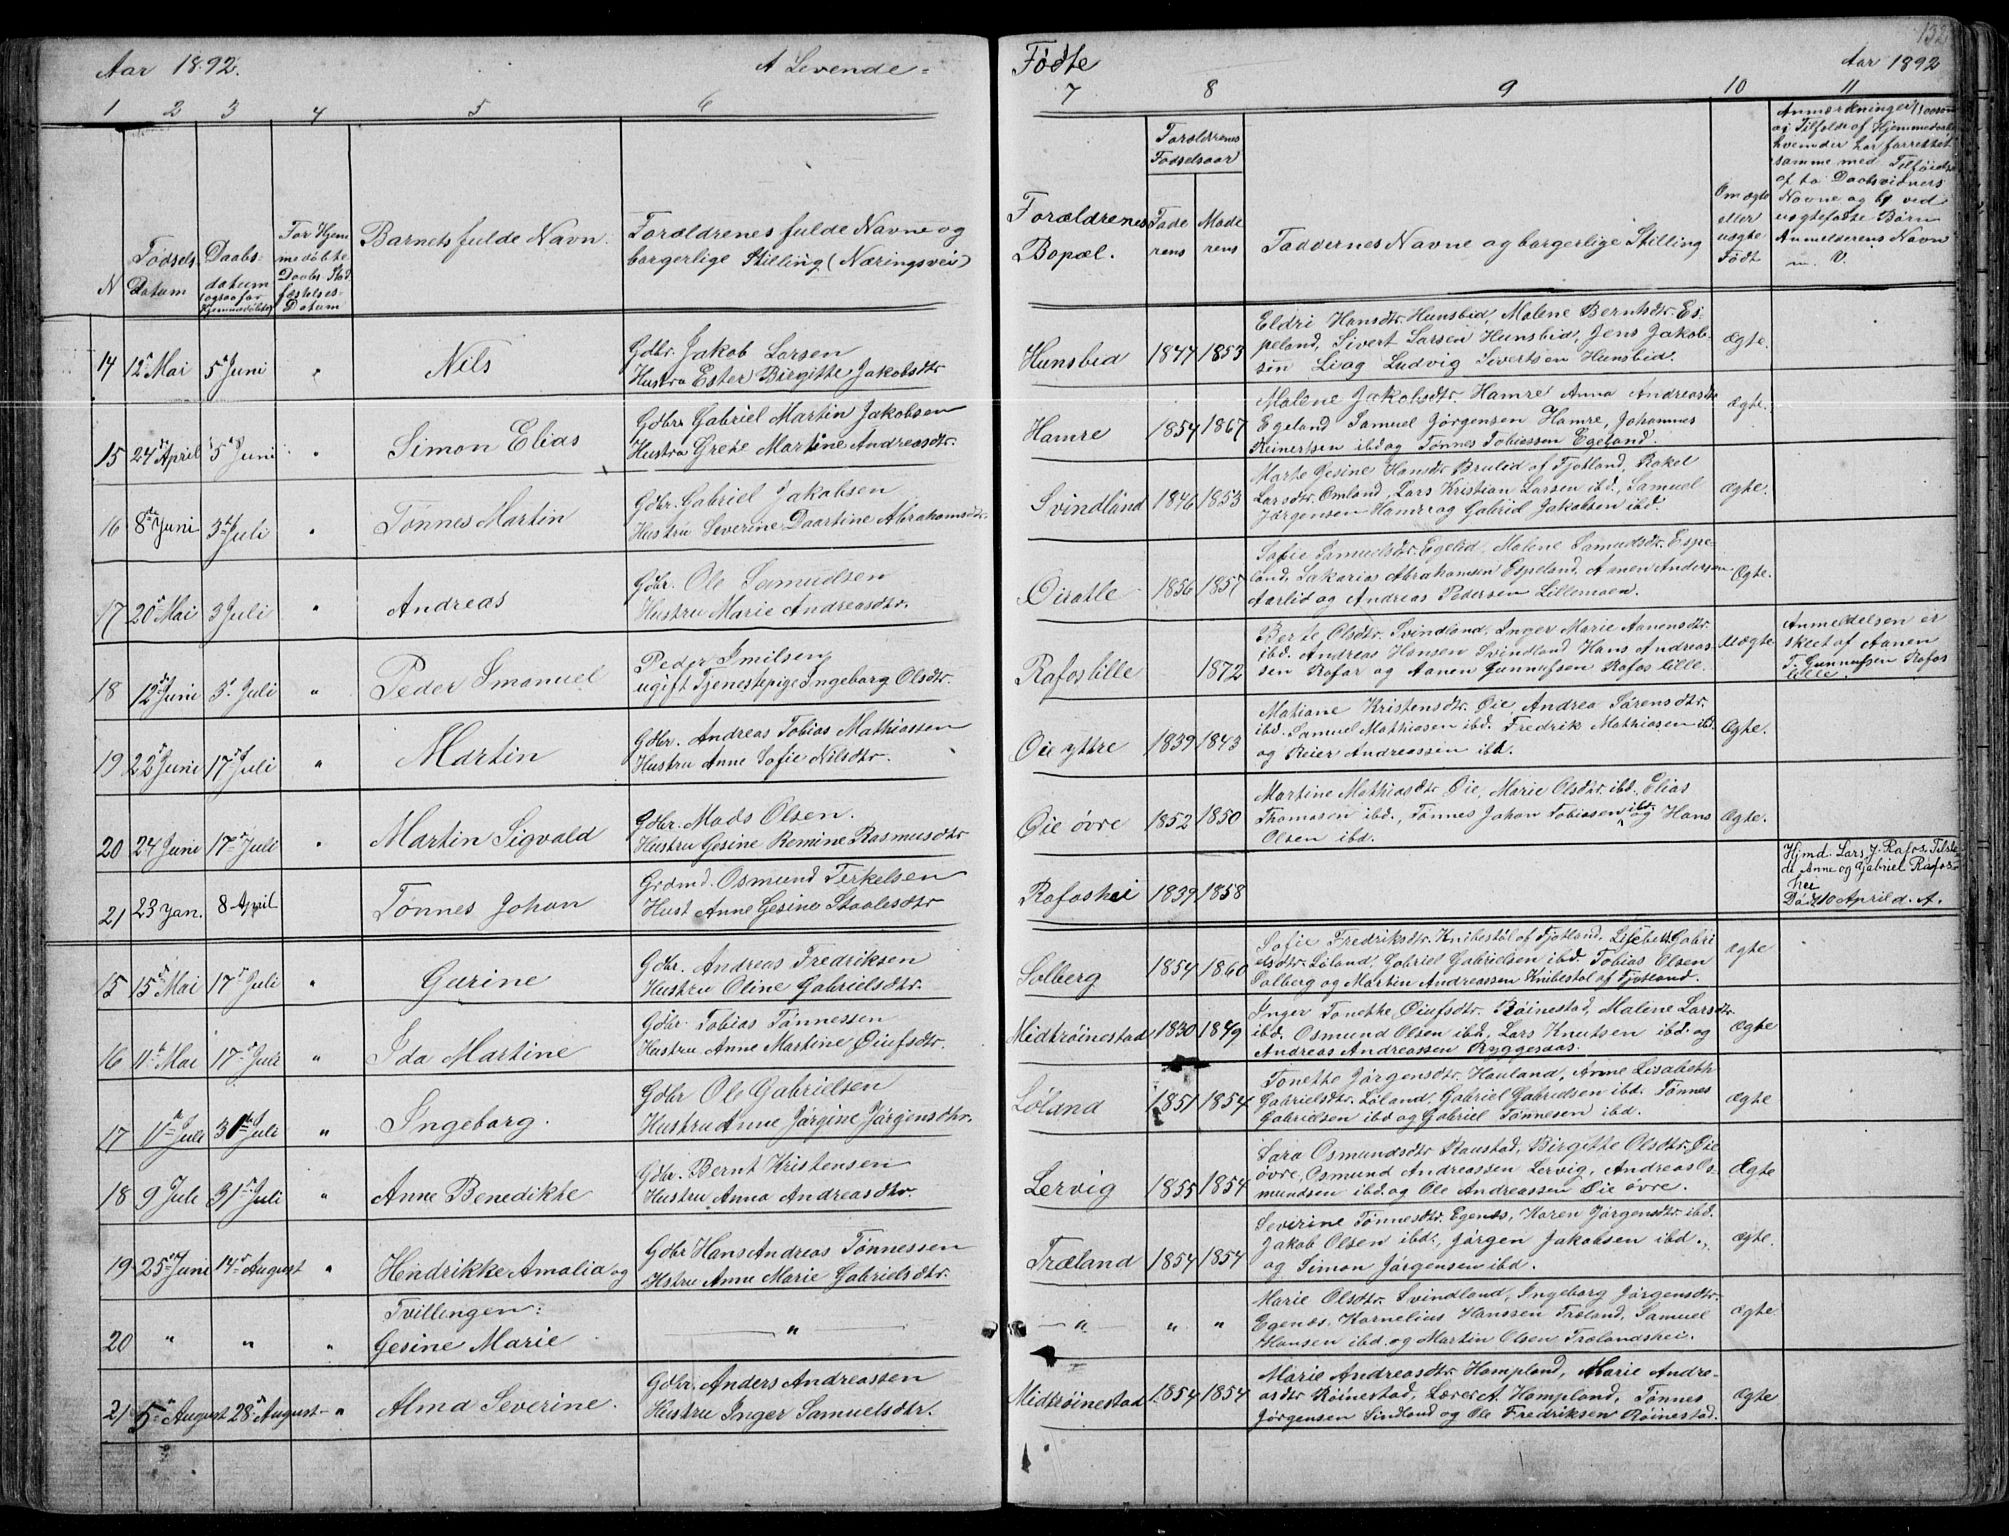 152
Aar 1892. A Levende = Födte Aar 1892
1 2 3 4 5 6 7 8 9 10 11
N
Födsels Datum
Daabs-datum (ogsaa for Hjemmedöbte)
For Hjemmedöbte Daabs Stadfæstelses-Datum
Barnets fulde Navn.
Forældrenes fulde Navne og borgerlige Stilling (Næringsvei)
Forældrenes Bopæl.
Forældrenes Fødselsaar
Faderens
Moderens
Faddernes Navne og borgerlige Stilling
Om ægte eller uægte Födt
Anmærkninger
i Tilfælde af Hjemmedaab
hvem der har forrettet
samme med Tilföielse
af to Daabsvidners
Navne og ved
uægtefødte Børn
Anmelderens Navn
m. V.
14 12te Mai 5te Juni " Nils
Gdbr. Jakob Larsen
Hustru Ester Birgitte Jakobsdtr
Hunsbed 1847 1853
Eldri Hansdtr. Hunsbed, Malene Berntsdtr. Es-
peland, Sivert Larsen Hunsbed, Jens Jakob-
sen Li og Ludvig Sivertsen Hunsbed.
Ægte.
15 24de April 5te Juni " Simon Elias
Gdbr. Gabriel Martin Jakobsen
Hustru Grete Martine Andreasdtr.
Hamre 1854 1867
Malene Jakobsdtr. Hamre Anna Andreasdtr
Egeland Samuel Jörgensen Hamre, Johannes
Reinertsen ibd og Tønnes Tobiassen Egeland.
Ægte.
16 8de Juni 3die Juli " Tønnes Martin
Gdbr. Gabriel Jakobsen
Hustru Severine Daartine Abrahamsdtr.
Svindland 1846 1853
Marte Gesine Hansdtr Brulid af Fjotland, Rakel
Larsdtr. Omland, Lars Kristian Larsen ibd., Samuel
Jørgensen Hamre og Gabriel Jakobsen ibd.
Ægte.
17 20de Mai 3 Juli " Andreas
Gdbr. Ole Samuelsen
Hustru Marie Andreasdtr.
1856 1857
Sofie Samuelsdtr. Egelid, Malene Samuelsdtr. Espe-
land, Sakarias Abrahamsen Espeland, Aanen Andersen
Aarlid og Andreas Pedersen Lillemoen.
Ægte.
18 12te Juni 3die Juli " Peder Emanuel
Peder Emilsen
ugift Tjenestepige Ingeborg Olsdtr.
Rafos lille 1872
Berte Olsdtr. Svindland, Inger Marie Aanensdtr.
ibd. Andreas Hansen Svindland Hans Andreas-
sen Rafos og Aanen Gunnufsen Rafos lille.
Uægte.
Anmeldelsen er
skeet af Aanen
Gunnufsen Rafos
lille.
19 22de Juni 17de Juli " Martin
Gdbr. Andreas Tobias Mathiassen
Hustru Anne Sofie Nilsdtr.
Öie yttre 1839 1843
Matiane Kristensdtr. Öie Andrea Sørensdtr.
ibd. Samuel Mathiasen ibd. Fredrik Mathiasen ibd.
og Reier Andreassen ibd.
Ægte.
20 24 Juni 17de Juli " Martin Sigvald
Gdbr. Mads Olsen.
Hustru Gesine Remine Rasmusdtr
Öie övre 1852 1850
Martine Mathiasdtr Öie, Marie Olsdtr. ibd. Elias
Thomasen ibd., Tønnes Johan Tobiasen ibd og Hans
Olsen ibd.
Ægte.
21 23 Jan. 8 April Tønnes Johan
Grdmd. Osmund Terkelsen
Hust Anne Gesine Staalesdtr
Rafoshei 1839 1858
Hjmd. Lars J. Rafos. Tilste-
de Anne og Gabriel Rafos-
hei
Död 10 April d. A.
15 15de Mai 17de Juli " Gurine
Gdbr. Andreas Fredriksen
Hustru Oline Gabrielsdtr.
Solberg 1854 1860
Sofie Fredriksdtr. Knibestøl af Fjotland, Lisebet Gabri-
elsdtr. Løland, Gabriel Gabrielsen ibd. Tobias Olsen
Solberg og Martin Andreassen Knibestøl af Fjotland.
ægte
16 11te Mai 17de Juli " Ida Martine
Gdbr. Tobias Tønnessen
Hustru Anne Martine Öiufsdtr.
Midtröinestad 1830 1849
Inger Tonette Öiufsdtr. Röinestad, Malene Larsdtr
ibd. Osmund Olsen ibd, Lars Knutsen ibd. og
Andreas Andreassen Ryggesaas.
Ægte
17 1ste Juli 31te Juli " Ingeborg.
Gdbr Ole Gabrielsen
Hustru Anne Jörgine Jörgensdtr.
Löland 1851 1854
Tonette Jörgensdtr. Hauland, Anne Lisabeth
Gabrielsdtr. Løland, Gabriel Gabrielsen ibd. Tønnes
Gabrielsen ibd og Gabriel Tønnesen ibd.
ægte
18 9 Juli 31te Juli " Anne Benedikte
Gdbr. Bernt Kristensen
Hustru Anna Andreasdtr.
Lervig 1855 1854
Sara Osmundsdtr Raustad, Birgitte Olsdtr. Öie
övre, Osmund Andreassen Lervig, Andreas Os-
mundsen ibd. og Ole Andreassen Öie övre.
Ægte
19 25de Juni 14de August " Hendrikke Amalia og
Gdbr Hans Andreas Tönnessen
Hstru Anne Marie Gabrielsdtr.
Træland 1854 1854
Severine Tønnesdtr. Egenes, Karen Jørgensdtr ibd.
Jakob Olsen ibd., Jörgen Jakobsen ibd.,
og Simon Jörgensen ibd.
ægte.
20 " " " Tvillingen:
Gesine Marie — " —
— " — " "
Marie Olsdtr. Svindland, Ingeborg Jørgensdtr.
Egenes, Kornelius Hanssen Træland, Samuel
Hansen ibd. og Martin Olsen Trælandshei.
ægte
21 5te August 28de August " Alma Severine.
Gdbr. Anders Andreassen
Hustru Inger Samuelsdtr.
Midtröinestad 1854 1854
Marie Andreasdtr. Hompland, Marie Andre-
asdtr Röinestad, Lærer A. Hompland, Tønnes
Jörgensen Sindland og Ole Fredriksen Röinestad.
Ægte